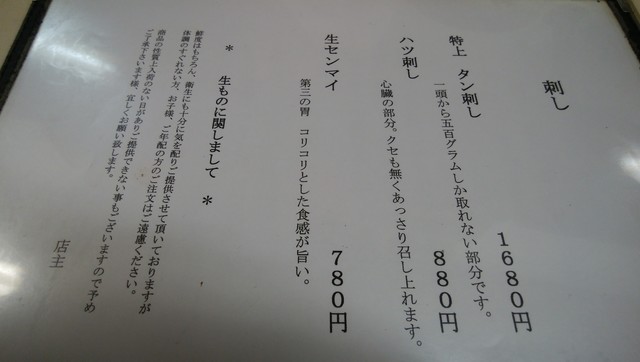 刺し
特上 タン刺し
1680円
一頭から五百グラムしか取れない部分です。
ハツ刺し
880円
心臓の部分。クセも無くあっさり召し上れます。
生センマイ
780円
第三の胃 コリコリとした食感が旨い。
* 生ものに関しまして *
鮮度はもちろん、衛生にも十分に気を配りご提供させて頂いておりますが
体調のすぐれない方、お子様、ご年配の方のご注文はご遠慮ください。
商品の性質上入荷のない日がありご提供できない事もございますので予め
ご了承下さいます様、宜しくお願い致します。
店主